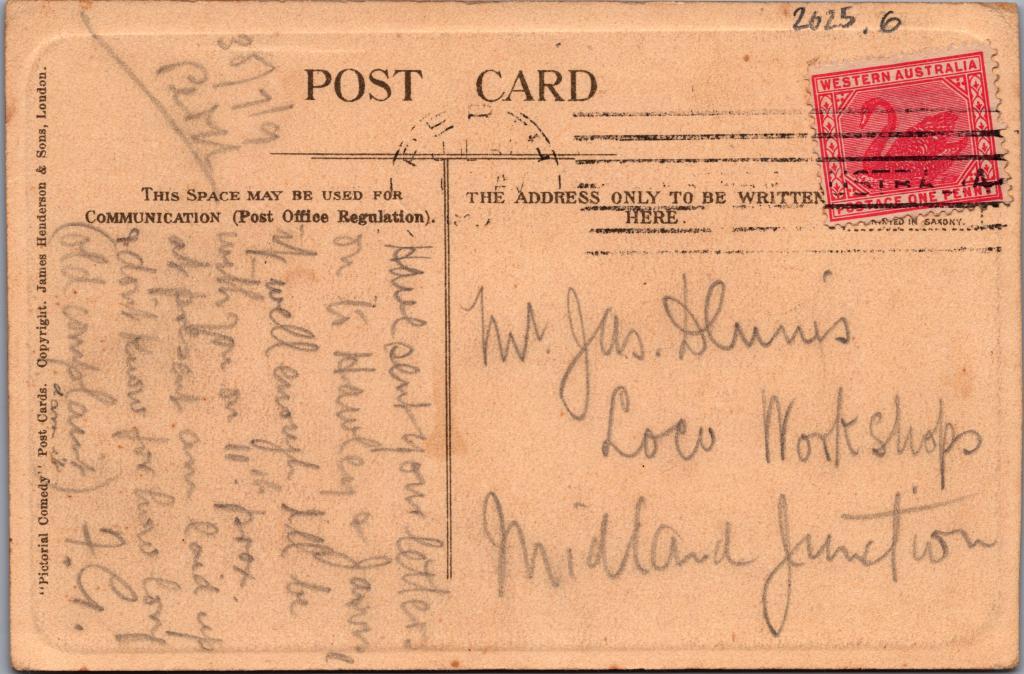 2625.6
POST CARD
WESTERN AUSTRALIA
POSTAGE ONE PENNY
PRINTED IN SAXONY.
THIS SPACE MAY BE USED FOR
COMMUNICATION (Post Office Regulation).
THE ADDRESS ONLY TO BE WRITTEN
HERE.
"Pictorial Comedy" Post Cards. Copyright. James Henderson & Sons, London.
Perth
Have sent your letters
on to Hawley &
If well enough Ill be
with you on 11th prox.
at present am laid up
& dont know for how long
(old complaint)
F. G.
Mr. Jas.
Loco Workshops
Midland Junction